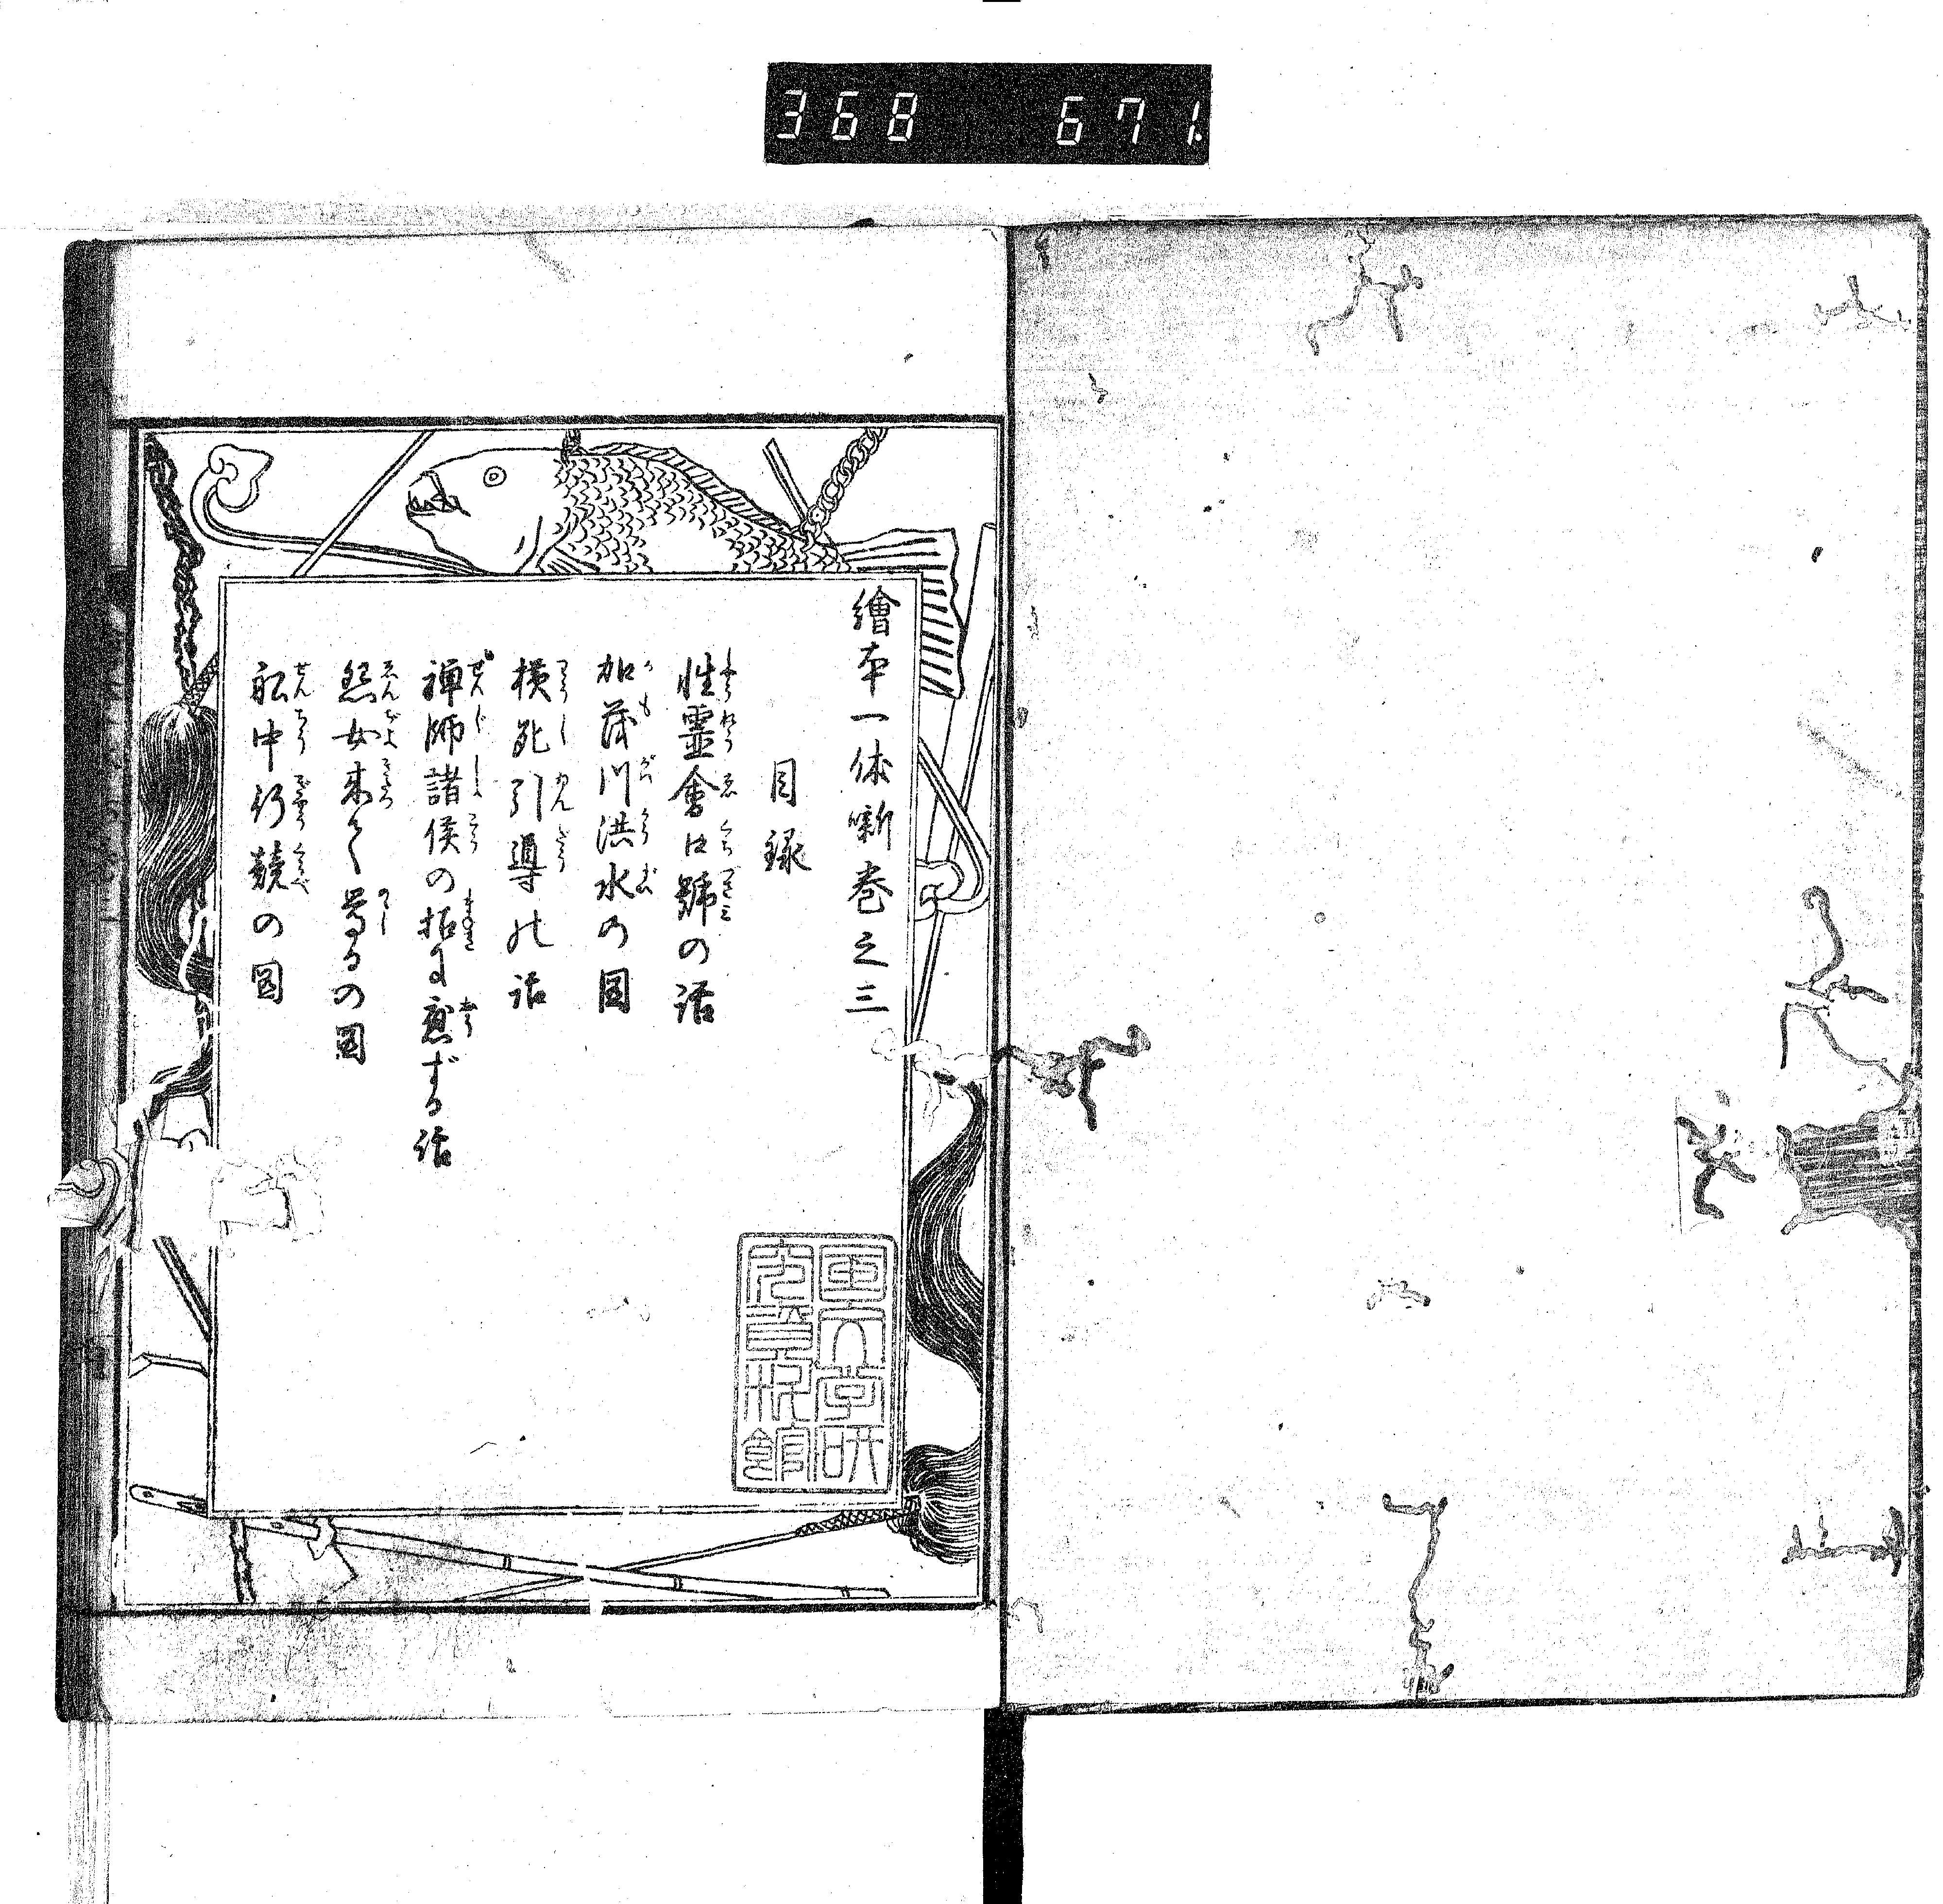 368 671
繪本一休噺巻之三
目録
性霊會口號の話
加茂川洪水の図
横死引導の話
禅師諸侯の招に應ずる話
怨女来て罵るの図
舩中行競の図
国文学研
究資料館